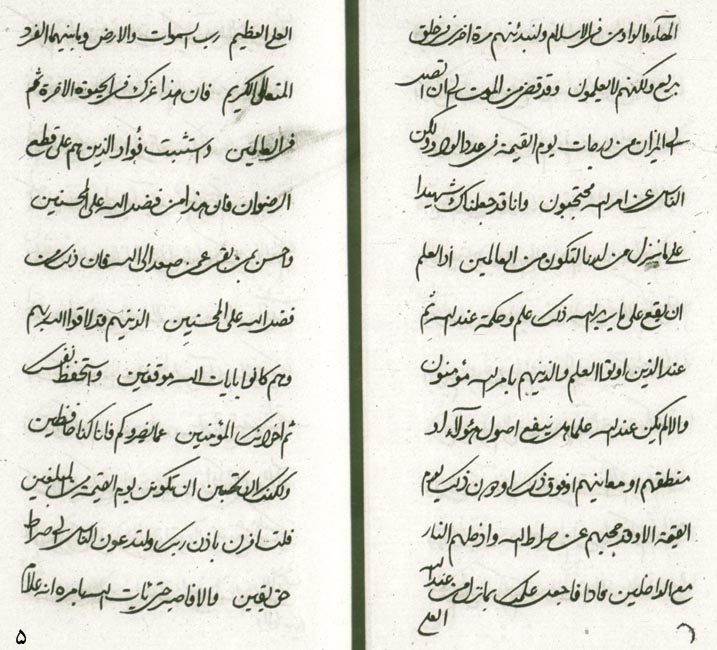 الهاء والواو من في الاسلام ولنبدئنهم مرة اخرى في خلق
بديع ولكنهم لا يعلمون وقد قضى من الموت الى ان اتصل
الى الميزان من درجات يوم القيمة في عدد الواو ولكن
الناس عن امر الله محتجبون وانا قد جعلناك شهيدا
على ما ينزل من لدينا لتكون من العالمين اذ العلم
ان يقع على ما يريد الله ذلك علم وحكمة عند الله ثم
عند الذين اوتوا العلم والذينهم بامر الله مؤمنون
والا لم يكن عند الله علما هل ينفع اصول هؤلاء او
منطقهم او معانيهم او فوق ذلك او دون ذلك يوم
القيمة الا وقد حجبهم عن صراط الله وادخلهم النار
مع الداخلين فاذا فاجعل علمك بما نزل من عند الله
العلي
العلي العظيم رب السموات والارض وما بينهما الفرد
المتعالي الكريم فان هذا عزك في الحيوة الاخرة ثم
في العالمين واستثبت فؤاد الذين هم على قطع
الرضوان فان هذا من فضل الله على المحسنين
واحسن بمن بقي عمن صعد الى الله فان ذلك من
فضل الله على المحسنين الذينهم قد لاقوا الله ربهم
وهم كانوا بايات الله موقنين واستحفظ نفسك
ثم اخوانك المؤمنين عما يضروكم فانا كنا حافظين
ولكنك ان تحبن ان تكونن يوم القيمة من المبلغين
فلتسافرن باذن ربك ولتدعون الناس الى صراط
حق يقين والا فاصبر حتى يات الله بامره انه علام
۵